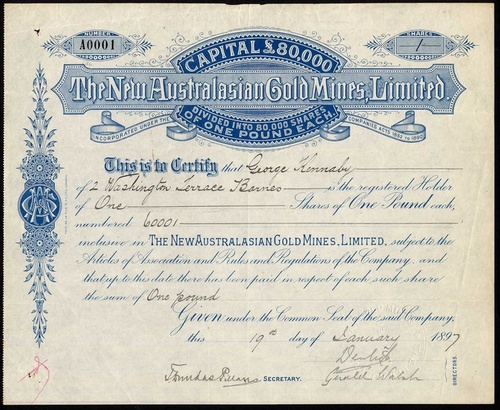 NUMBER
A0001
SHARES
1
CAPITAL £80,000
The New Australasian Gold Mines, Limited.
DIVIDED INTO 80,000 SHARES
OF ONE POUND EACH.
INCORPORATED UNDER THE COMPANIES ACTS 1862 TO 1890
This is to Certify that George Kennaby
of 2 Washington Terrace Barnes is the registered Holder
of One Shares of One Pound each,
numbered 60001
inclusive in THE NEW AUSTRALASIAN GOLD MINES, LIMITED, subject to the
Articles of Association and Rules and Regulations of the Company, and
that up to this date there has been paid in respect of each such share
the sum of One pound
Given under the Common Seal of the said Company,
this 19th day of January 1897
SECRETARY.
DIRECTORS.